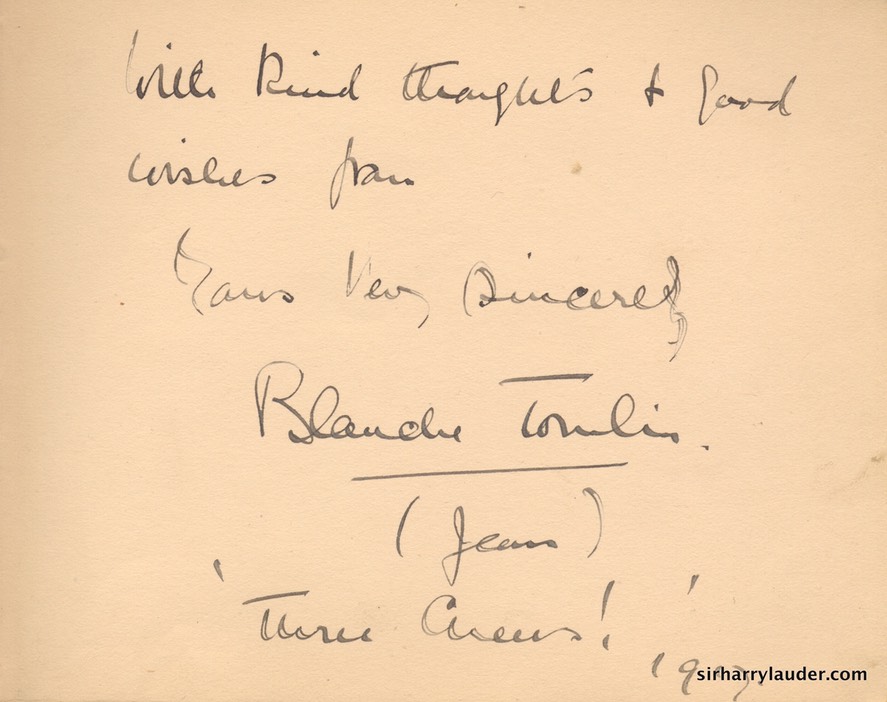 With kind thoughts & good
wishes from
Yours Very Sincerely
Blanche Tomlin.
(Jean)
'Three Cheers!'
sirharrylauder.com